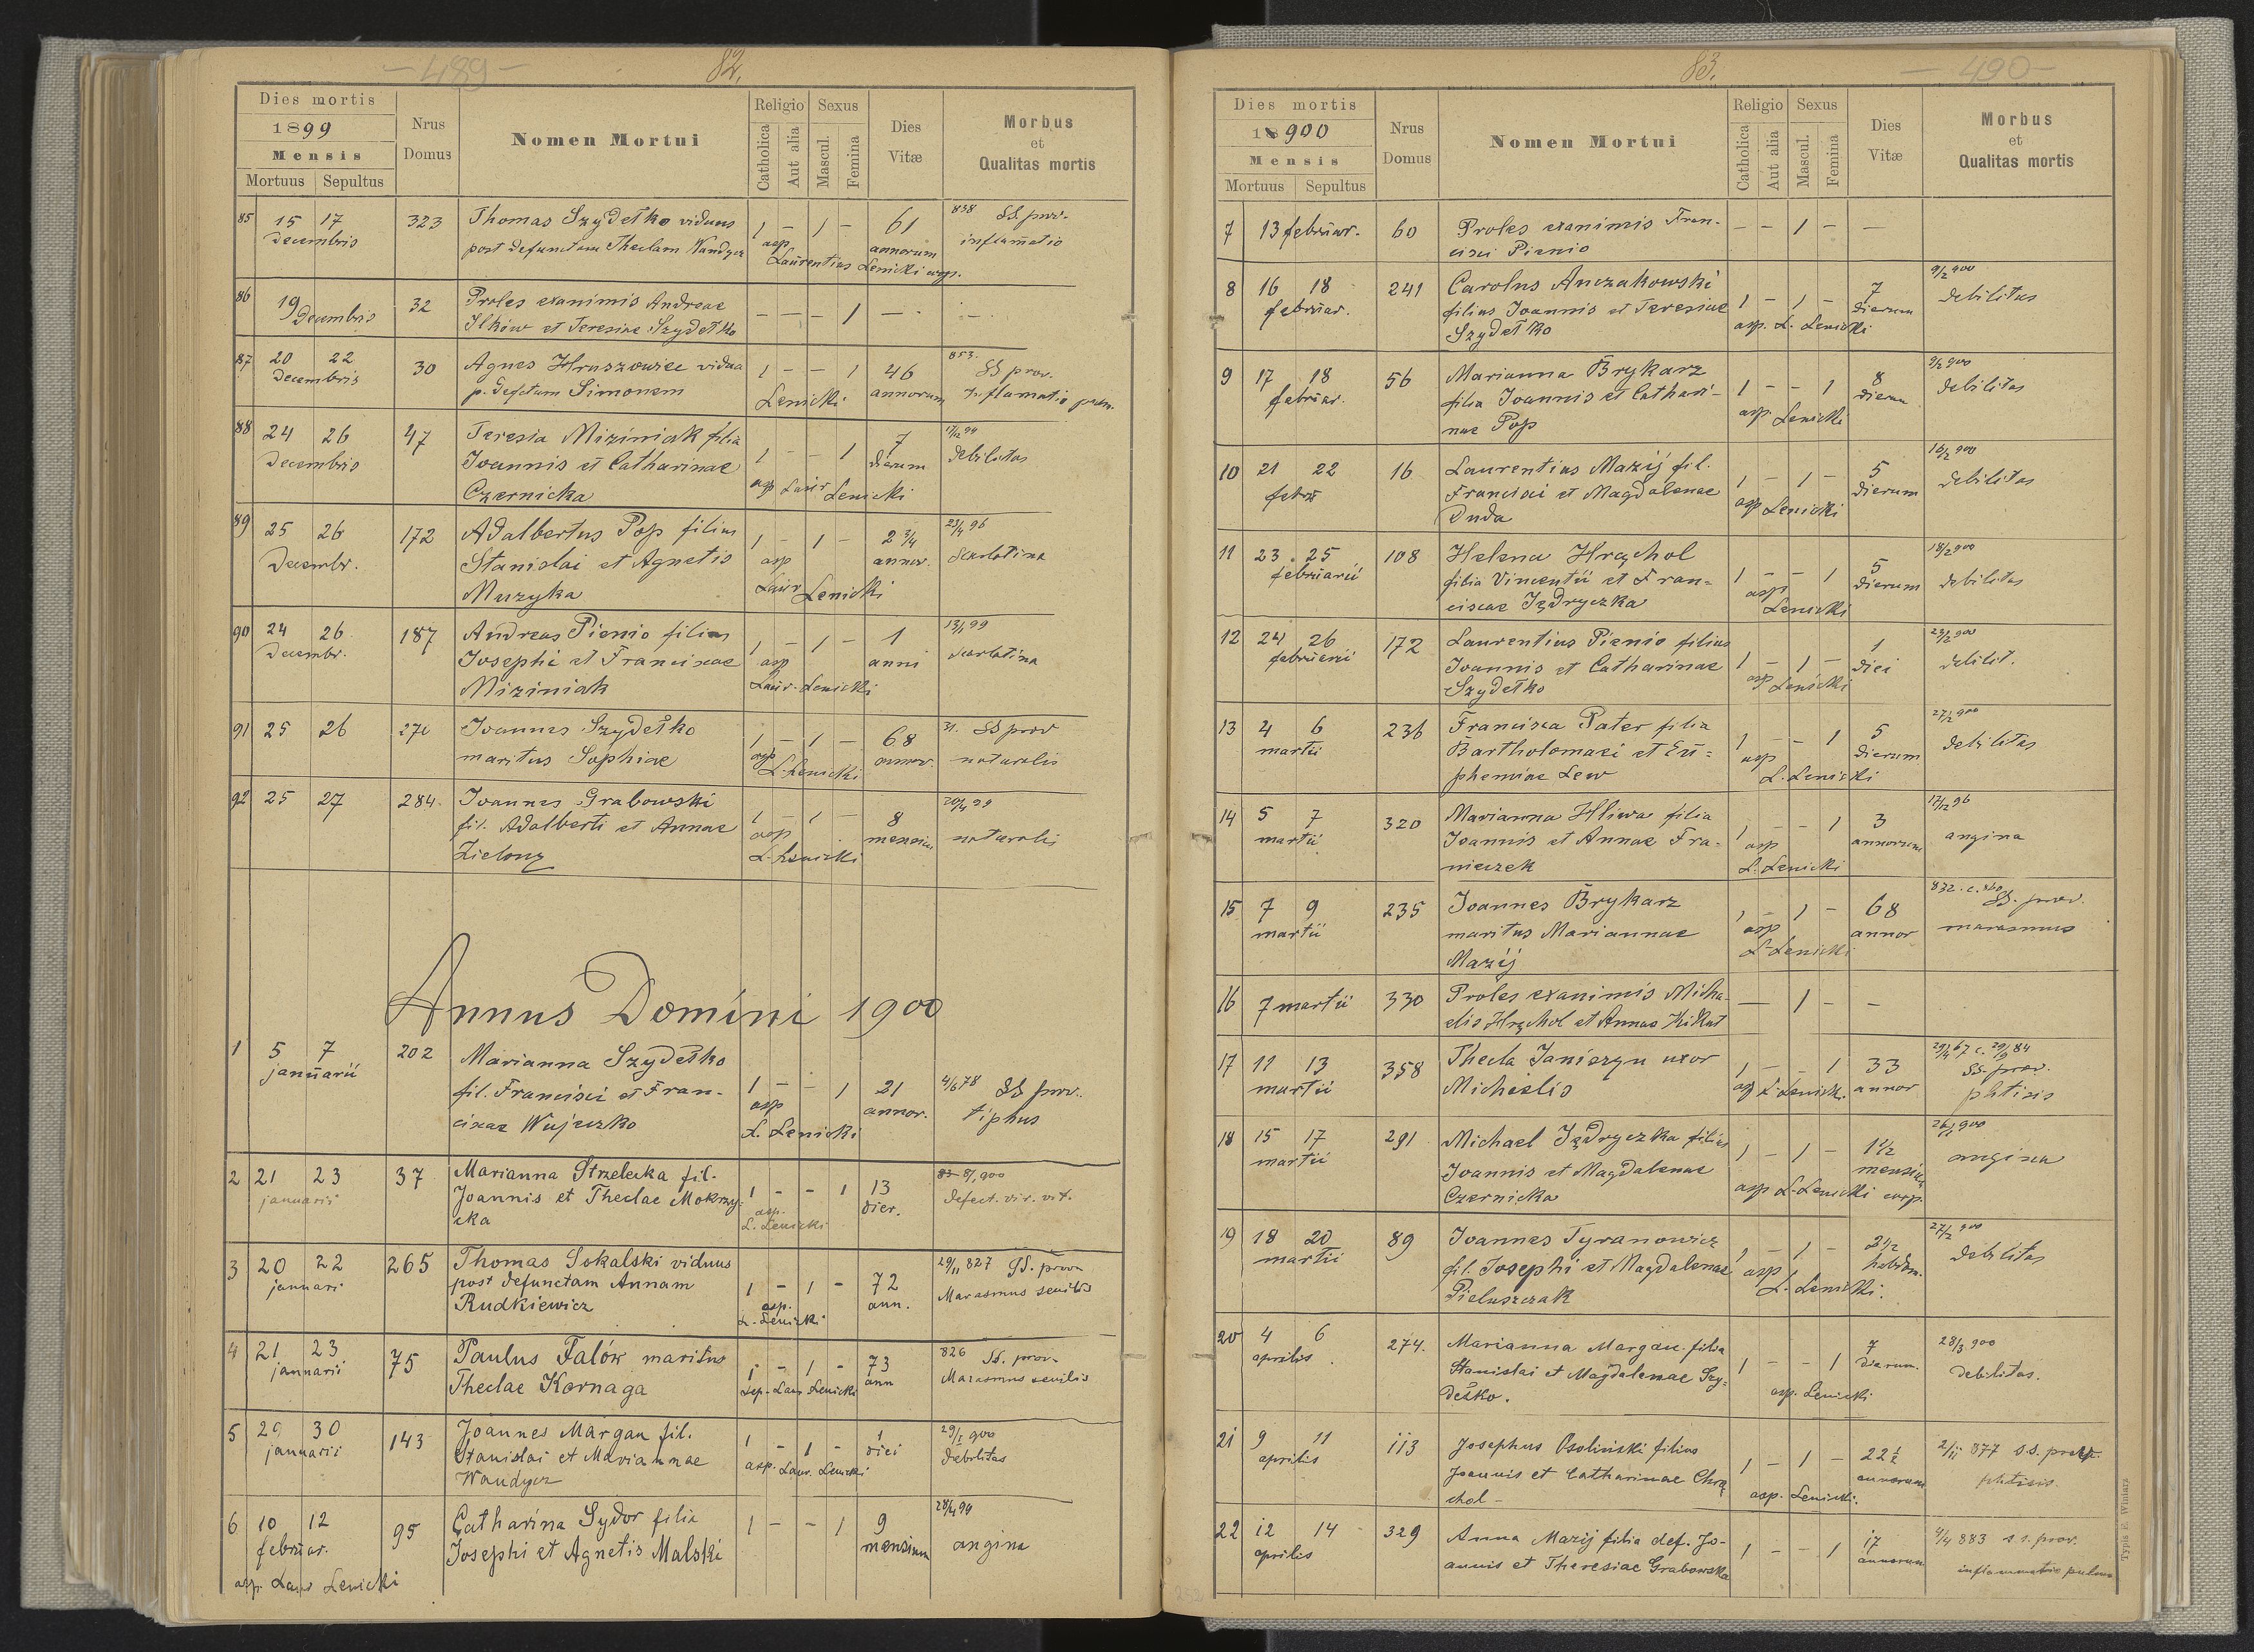 - 489 -
82.
Dies mortis
1899
Mensis
Mortuus Sepultus
Nrus Domus
Nomen Mortui
Religio
Catholica
Aut alia
Sexus
Mascul.
Femina
Dies Vitæ
Morbus
et
Qualitas mortis
85 15 17 323 Thomas Szydełko viduus 1 - 1 - 61 838 SS. prov.
decembris post defunctam Theclam Wandycz asp. annorum inflamatio
Laurentius Lenicki coop.
86 19 decembris 32 Proles exanimis Andreae - - - 1 - -
Ilków et Teresiae Szydełko
87 20 22 30 Agnes Hruszowiec vidua 1 - - 1 46 853. SS prov.
decembris p. defctum Simonem Lenicki annorum inflamatio pulm.
88 24 26 47 Teresia Miziniak filia 1 - - 1 7
decembris Joannis et Catharinae dierum debilitas
Czernicka asp Laur Lenicki
89 25 26 172 Adalbertus Pop filius 1 - 1 - 2 3/4 23/4 96
Decembr. Stanislai et Agnetis asp annor. scarlatina
Muzyka Laur Lenicki
90 24 26 187 Andreas Pienio filius 1 - 1 - 1 13/1 99
Decembr. Josephi et Franciscae asp anni scarlatina
Miziniak Laur. Lenicki
91 25 26 270 Joannes Szydełko 1 - 1 - 68 31. SS prov
maritus Sophiae asp L. Lenicki annor. naturalis
92 25 27 284. Joannes Grabowski 1 - 1 - 8 20/4 99
fil. Adalberti et Annae asp mensium naturalis
Zielony L. Lenicki
Annus Domini 1900
1 5 7 202 Marianna Szydełko
januarii fil. Francisci et Fran- 1 - - 1 21 4/6 78 SS prov.
ciscae Wujeczko asp annor. tiphus
L. Lenicki
2 21 23 37 Marianna Strzelecka fil. 8/1 900
januarii Joannis et Theclae Mokrzy- 1 - - 1 13 defect. vir. vit.
cka asp. L. Lenicki dier.
3 20 22 265 Thomas Sokalski viduus 29/11 827 SS. prov
januari post defunctam Annam 1 - 1 - 72 Marasmus senilis
Rudkiewicz asp. L. Lenicki ann.
4 21 23 75 Paulus Falów maritus 1 - 1 - 73 826 SS. prov.
januarii Theclae Kornaga asp. Laur Lenicki ann Marasmus senilis
5 29 30 143 Joannes Margan fil. 1 - 1 - 1 29/1 900
januarii Stanislai et Mariannae asp. Laur. Lenicki diei debilitas
Wandycz
6 10 12 95 Catharina Sydor filia 1 - - 1 9 28/4 99
februar. Josephi et Agnetis Malski mensium angina
asp. Laur Lenicki
83.
- 490 -
Dies mortis
1900
Mensis
Mortuus Sepultus
Nrus Domus
Nomen Mortui
Religio
Catholica
Aut alia
Sexus
Mascul.
Femina
Dies Vitæ
Morbus
et
Qualitas mortis
7 13 februar. 60 Proles exanimis Fran- - - 1 - -
cisci Pienio
8 16 18 241 Carolus Anczakowski 1 - 1 - 7 9/2 900
februar. filius Joannis et Teresiae dierum debilitas
Szydełko asp. L. Lenicki
9 17 18 56 Marianna Brykarz 1 - - 1 8 9/2 900
februar. filia Joannis et Cathari- dierum debilitas
nae Pop asp. Lenicki
10 21 22 16 Laurentius Mazij fil. 1 - 1 - 5 16/2 900
febr Francisci et Magdalenae dierum debilitas
Duda asp Lenicki
11 23. 25 108 Helena Hrąchol 1 - - 1 5 18/2 900
februarii filia Vincentii et Fran= dierum debilitas
ciscae Jędryczka asp Lenicki
12 24 26 172 Laurentius Pienio filius 1 - 1 - 1 900
februarii Joannis et Catharinae diei debilit.
Szydełko asp Lenicki
13 4 6 236 Francisca Pater filia 1 - - 1 5 27/2 900
martii Bartholomaei et Eu= asp dierum debilitas
phemiae Lew L. Lenicki
14 5 7 320 Marianna Hliwa filia 1 - - 1 3 17/12 96
martii Joannis et Annae Fra- asp annorum angina
nieczek L. Lenicki
15 7 9 235 Joannes Brykarz 1 - 1 - 68 832. c. 860 SS. prov.
martii maritus Mariannae asp annor marasmus
Mazij L. Lenicki
16 7 martii 330 Proles exanimis Micha- - 1 - -
elis Hrąchol et Annae Kikut
17 11 13 358 Thecla Janiszyn uxor 1 - - 1 33 29/4 67 c. 29/9 84
martii Michaelis asp L. Lenick. annor SS. prov.
phtisis
18 15 17 291 Michael Jędryczka filius 1 - 1 - 1 1/2 900
martii Joannis et Magdalenae mensium angina
Czernicka asp L. Lenicki coop.
19 18 20 89 Joannes Tyranowicz 1 - 1 - 2 1/2 27/2 900
martii fil. Josephi et Magdalenae asp hebdom. debilitas
Pieluszczak L. Lenicki.
20 4 6 274. Marianna Margan filia 1 - - 1 7 28/3 900
aprilis Stanislai et Magdalenae Szy= dierum. debilitas.
dełko. asp. Lenicki
21 9 11 113 Josephus Osoliński filius 1 - 1 - 22 1/2 2/11 877 s.s. prov.
aprilis Joannis et Catharinae Chrą annorum phtisis
chol - asp. Lenicki.
22 12 14 329 Anna Mazij filia def. Jo- 1 - - 1 17 4/4 883 s s. prov.
aprilis annis et Theresiae Grabowska annorum inflammatio pulmon
Typis E. Winiarz